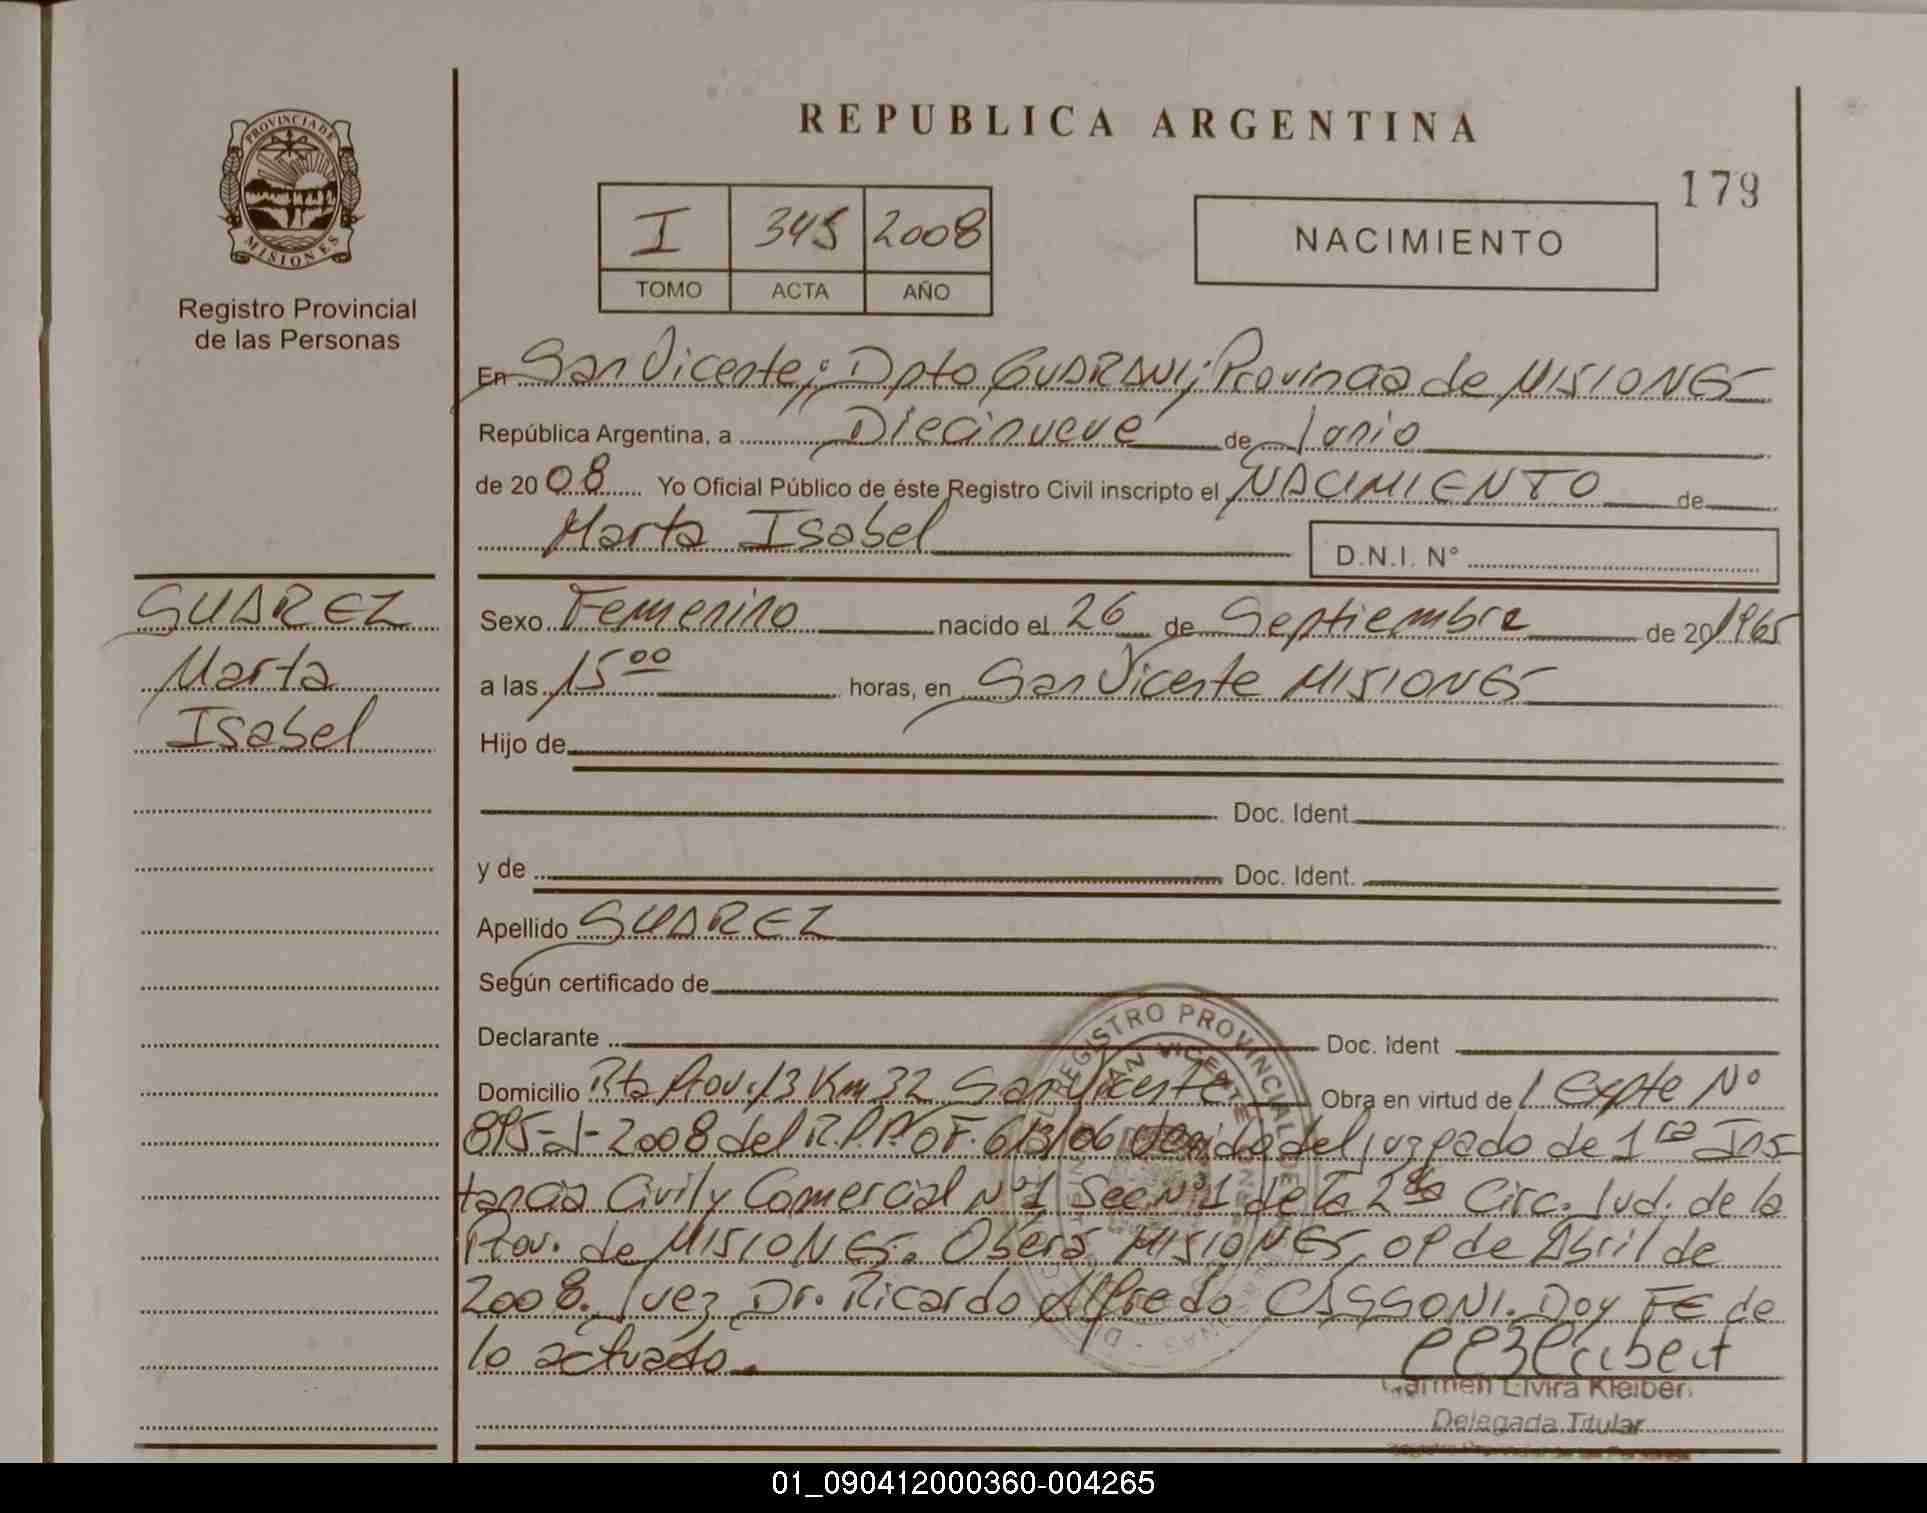 REPUBLICA ARGENTINA
179
PROVINCIA DE MISIONES
Registro Provincial
de las Personas
I 345 2008
TOMO ACTA AÑO
NACIMIENTO
En San Vicente; Dpto GUARANI; Provincia de MISIONES
República Argentina, a Diecinueve de Junio
de 2008 Yo Oficial Público de éste Registro Civil inscripto el NACIMIENTO de
Marta Isabel D.N.I. N°
SUAREZ
Marta
Isabel
Sexo Femenino nacido el 26 de Septiembre de 20 1965
a las 15 00 horas, en San Vicente MISIONES
Hijo de
Doc. Ident.
y de Doc. Ident.
Apellido SUAREZ
Según certificado de
Declarante Doc. Ident
Domicilio Rta Prov. 13 Km 32 San Vicente Obra en virtud de Expte N°
895-J-2008 del R.P.P. OF. 613/06 del juzgado de 1ra Ins-
tancia Civil y Comercial N°1 Sec N°1 de la 2da Circ. Jud. de la
Prov. de MISIONES. Oberá MISIONES, 09 de Abril de
2008. Juez Dr. Ricardo Alfredo CASSONI. Doy FE de
lo actuado.
REGISTRO PROVINCIAL DE
SAN VICENTE
Carmen Elvira Kleibert
Delegada Titular
01_090412000360-004265